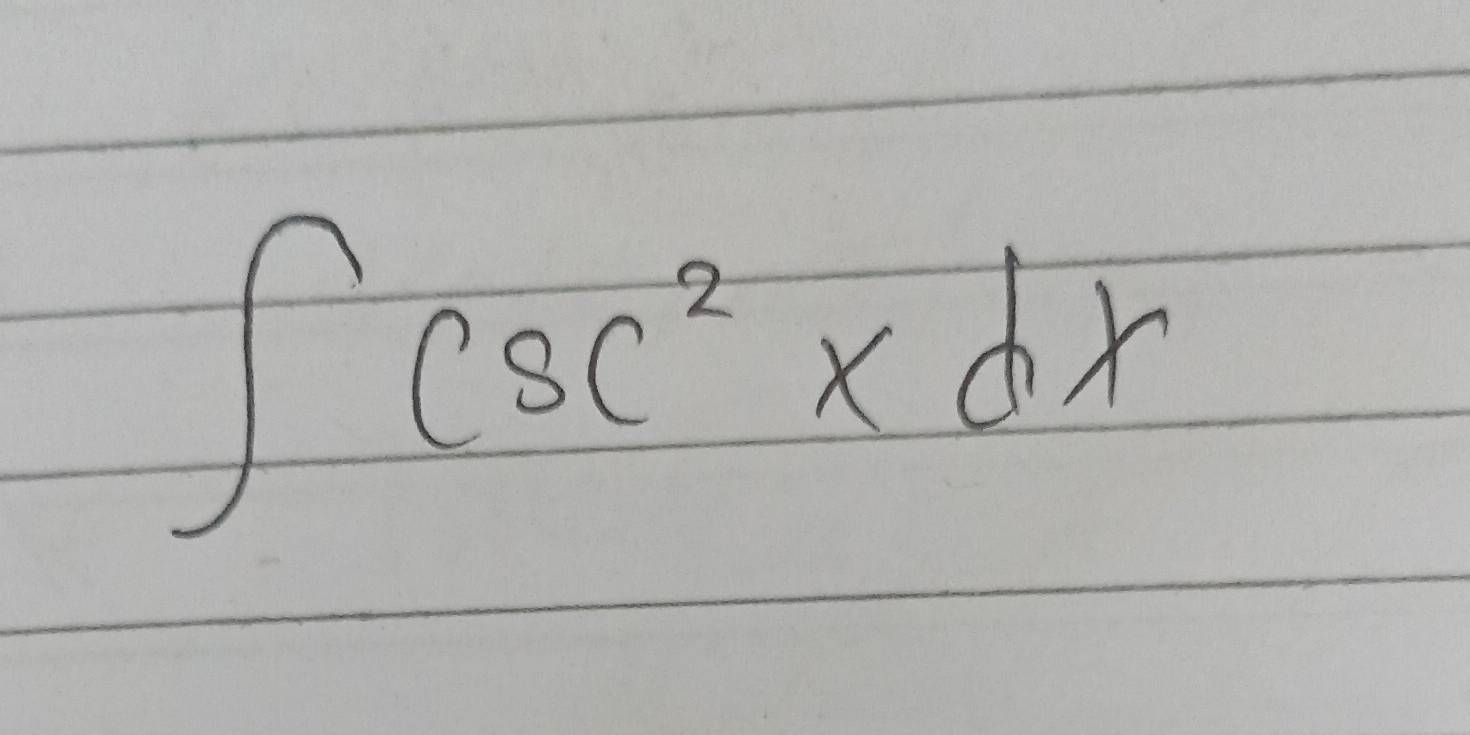 ∫ csc² x dx